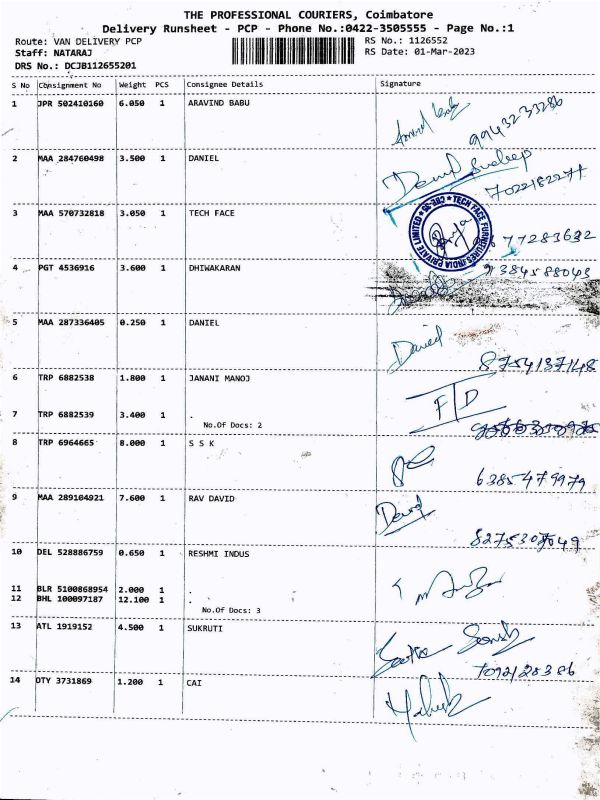 THE PROFESSIONAL COURIERS, Coimbatore
Delivery Runsheet - PCP - Phone No.:0422-3505555 - Page No.:1
Route: VAN DELIVERY PCP RS No.: 1126552
Staff: NATARAJ RS Date: 01-Mar-2023
DRS No.: DCJB112655201
S No Consignment No Weight PCS Consignee Details Signature
1 JPR 502410160 6.050 1 ARAVIND BABU
9943233286
2 MAA 284760498 3.500 1 DANIEL
Sudeep
7022182277
3 MAA 570732818 3.050 1 TECH FACE
TECH FACE FURNITURES INDIA PRIVATE LIMITED ★ CBE-35 ★
77283632
4 PGT 4536916 3.600 1 DHIWAKARAN
9384588043
5 MAA 287336405 0.250 1 DANIEL
Daniel
8754137148
6 TRP 6882538 1.800 1 JANANI MANOJ
F/D
7 TRP 6882539 3.400 1 .
No.Of Docs: 2
8 TRP 6964665 8.000 1 S S K
6385479979
9 MAA 289104921 7.600 1 RAV DAVID
David
10 DEL 528886759 0.650 1 RESHMI INDUS
11 BLR 5100868954 2.000 1 .
12 BHL 100097187 12.100 1 .
No.Of Docs: 3
13 ATL 1919152 4.500 1 SUKRUTI
14 OTY 3731869 1.200 1 CAI